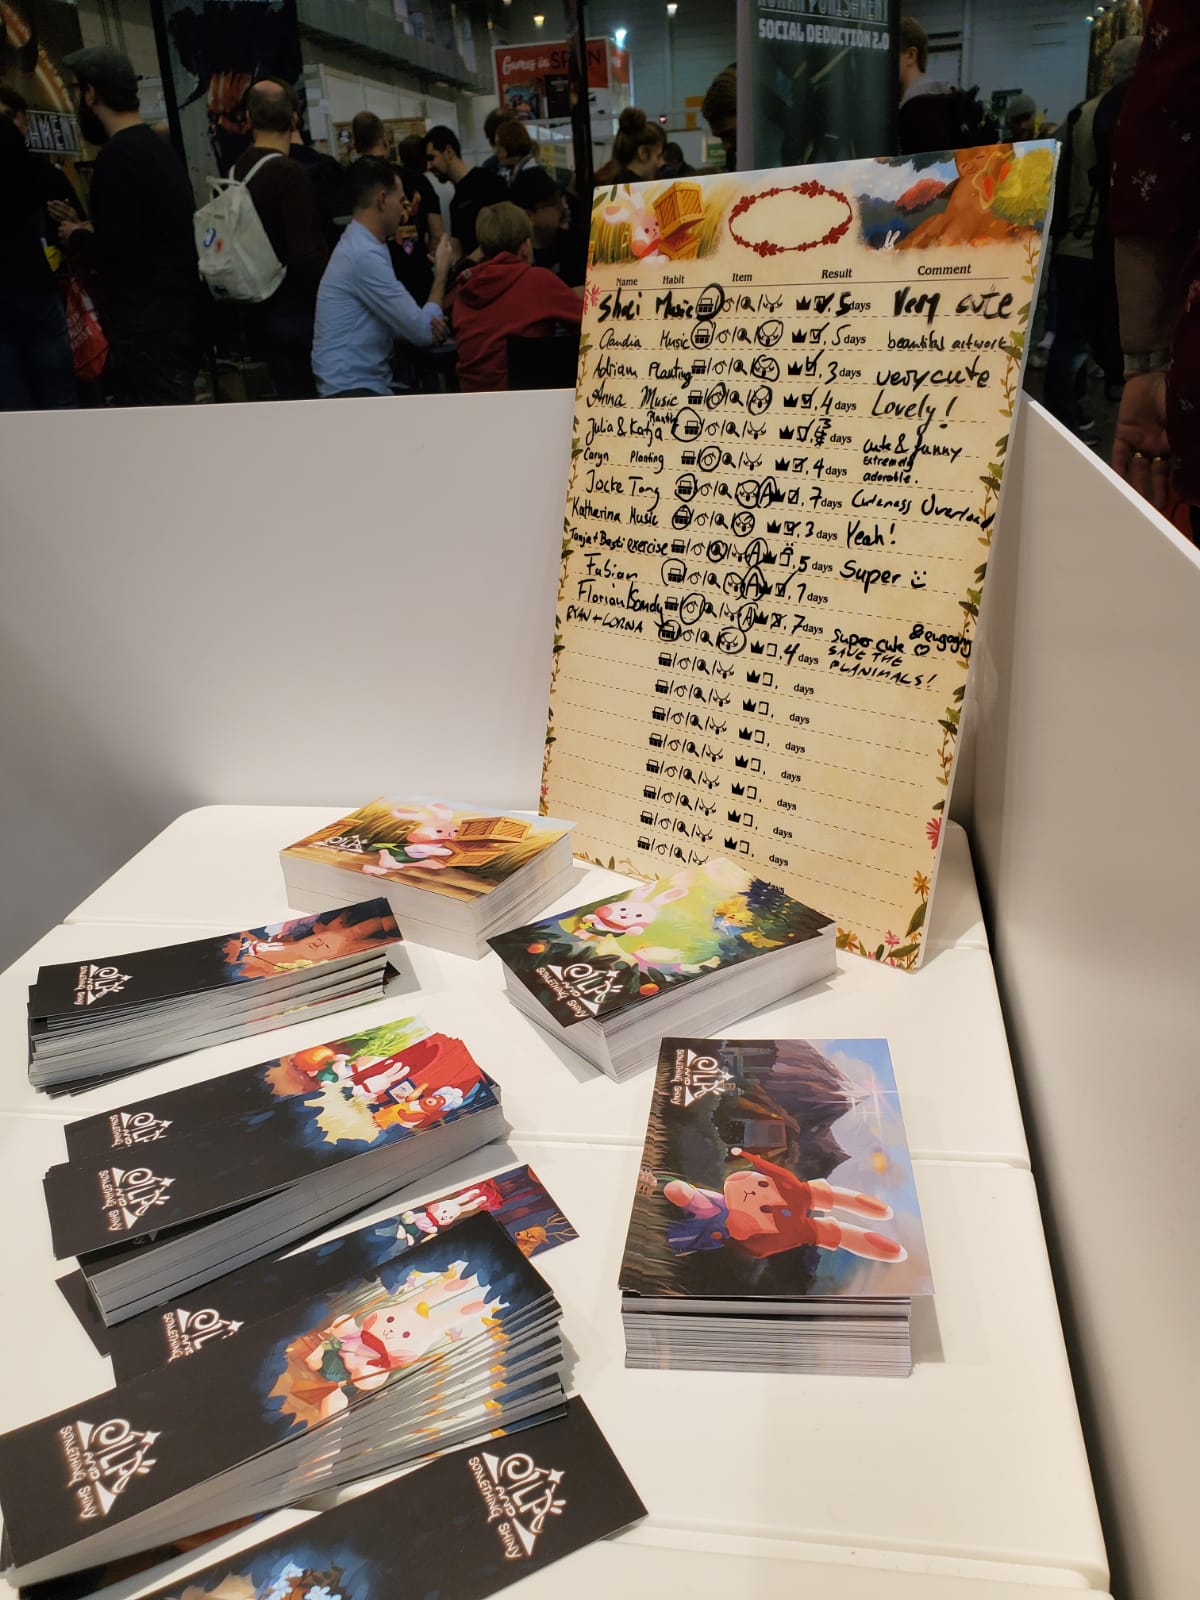 HUMAN PUNISHMENT
SOCIAL DEDUCTION 2.0
Games in SPAIN
Name Habit Item Result Comment
Shei Music 5 days Very cute
Claudia Music 5 days beautiful artwork
Adrian Planting 3 days very cute
Anna Music 4 days Lovely!
Julia & Katja days cute & funny
Caryn Planting 4 days Extremely adorable.
Jocke Tong A 7 days Cuteness Overload
Katharina Music 3 days Yeah!
Tanja+Basti exercise A 5 days Super
Fabian A 7 days
Florian A 7 days Super cute & engaging
RYAN + LORNA 4 days SAVE THE PLANIMALS!
days
days
days
days
days
days
days
days
days
OILA
OILA
AND
SOMETHING SHINY
OILA
AND
SOMETHING SHINY
OILA
AND
SOMETHING SHINY
OILA
SOMETHING
OILA
AND
SOMETHING SHINY
OILA
SOMETHING
OILA
AND
SOMETHING SHINY
OILA
AND
SOMETHING SHINY